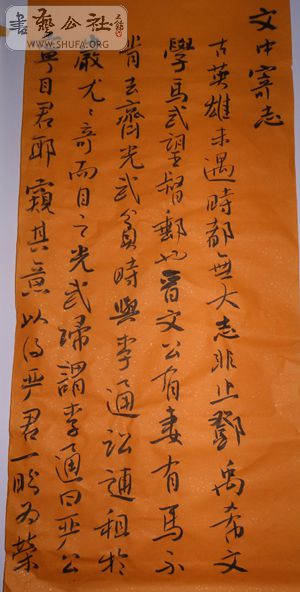 書藝公社
WWW.SHUFA.ORG
文中寄志
古英雄未遇時都無大志非止鄧禹希文
學馬武望督郵也晉文公有妻有馬不
肯去齊光武貧時與李通訟逋租於
嚴尤〻奇而目之光武歸謂李通曰严公
寧目君耶窺其意以得严君一盼為榮